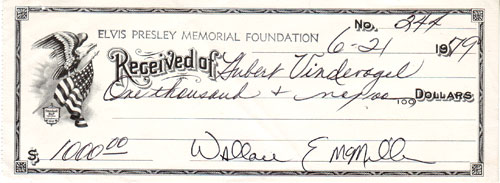 No. 244
ELVIS PRESLEY MEMORIAL FOUNDATION
6-21 1979
Received of Hubert Vindevogel
One thousand & no/00 100 DOLLARS
$ 1000.00
Wallace E McMillen